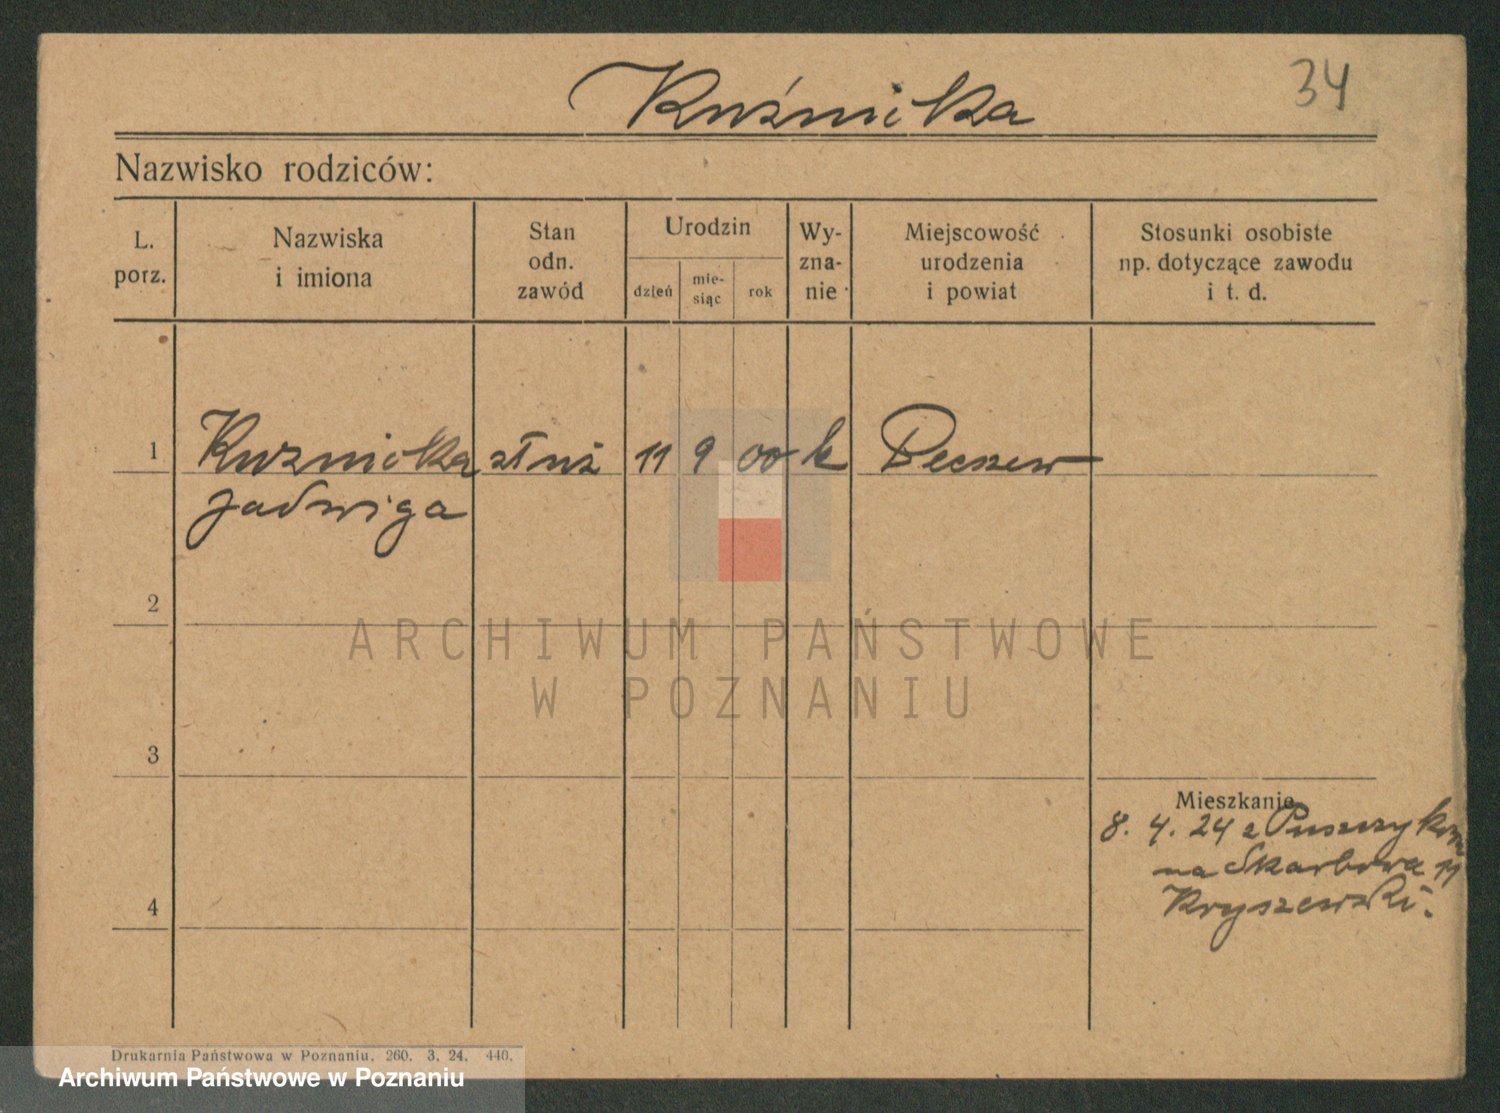 34
Kuźnicka
Nazwisko rodziców:
L. porz.
Nazwiska i imiona
Stan odn. zawód
Urodzin
dzień
mie-
siąc
rok
Wy-
zna-
nie
Miejscowość
urodzenia
i powiat
Stosunki osobiste
np. dotyczące zawodu
i t. d.
1 Kuznicka służ 11 9 00 k
Jadwiga
2
ARCHIWUM PAŃSTWOWE
W POZNANIU
3
Mieszkanie
8. 4. 24 z
na Skarbowa 11
4
Kryszewski.
Drukarnia Państwowa w Poznaniu. 260. 3. 24. 440.
Archiwum Państwowe w Poznaniu